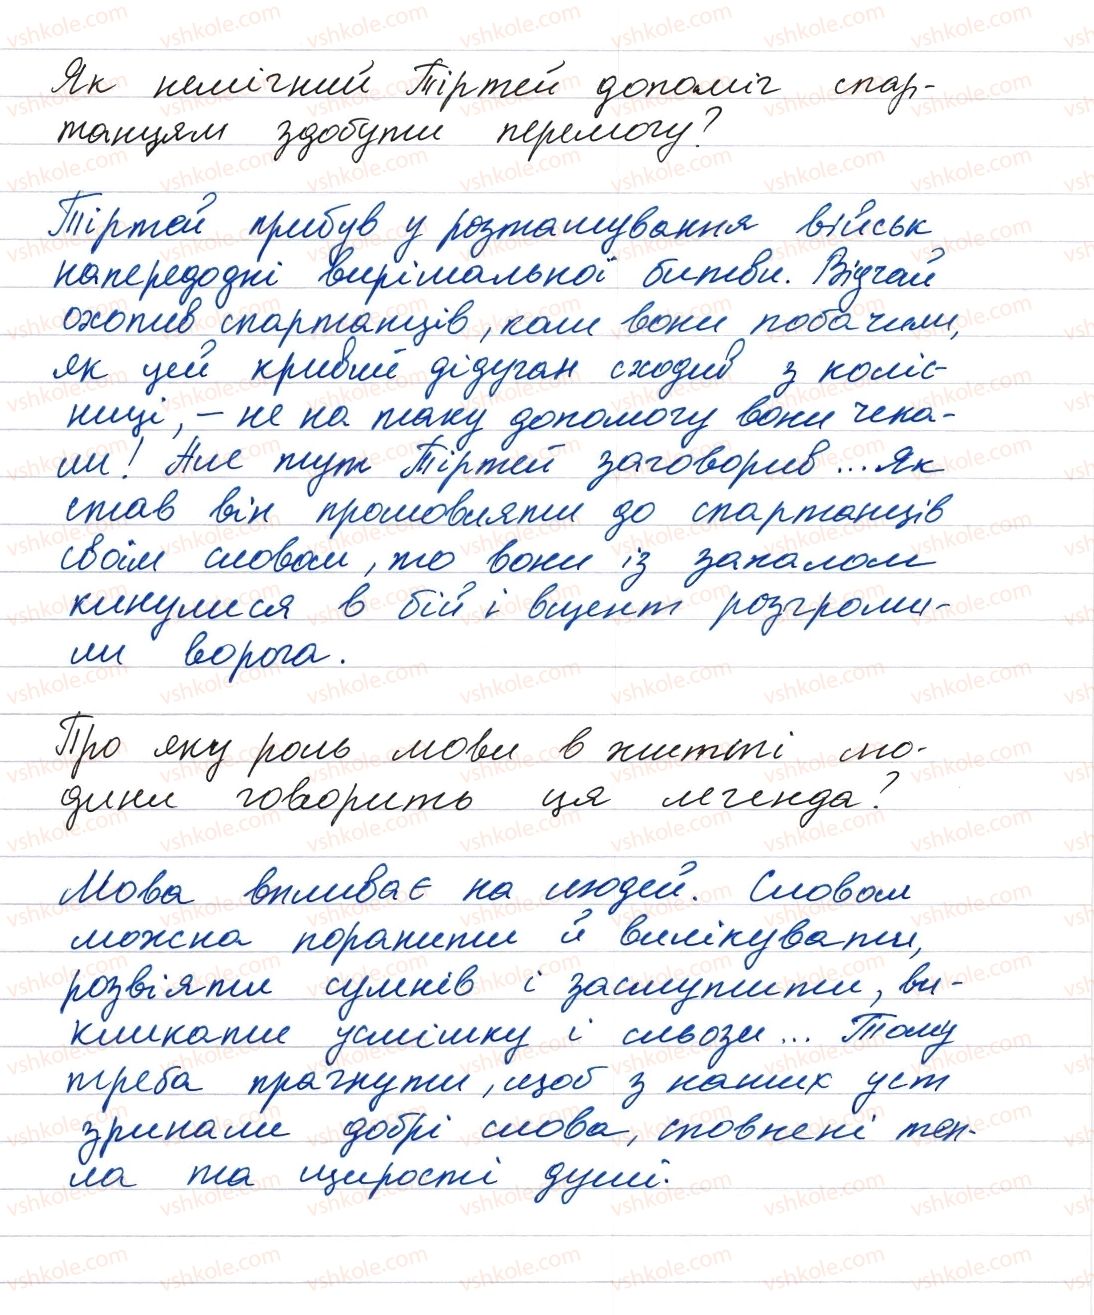 Як немічний Тіртей допоміг спар-
танцям здобути перемогу?
Тіртей прибув у розташування військ
напередодні вирішальної битви. Відчай
охопив спартанців, коли вони побачили,
як цей кривий дідуган сходив з коліс-
ниці, – не на таку допомогу вони чека-
ли! Але тут Тіртей заговорив... Як
став він промовляти до спартанців
своїм словом, то вони із запалом
кинулися в бій і вщент розгроми-
ли ворога.
Про яку роль мови в житті лю-
дини говорить ця легенда?
Мова впливає на людей. Словом
можна поранити й вилікувати,
розвіяти сумнів і засмутити, ви-
кликати усмішку і сльози... Тому
треба прагнути, щоб з наших уст
зринали добрі слова, сповнені теп-
ла та щирості душі.